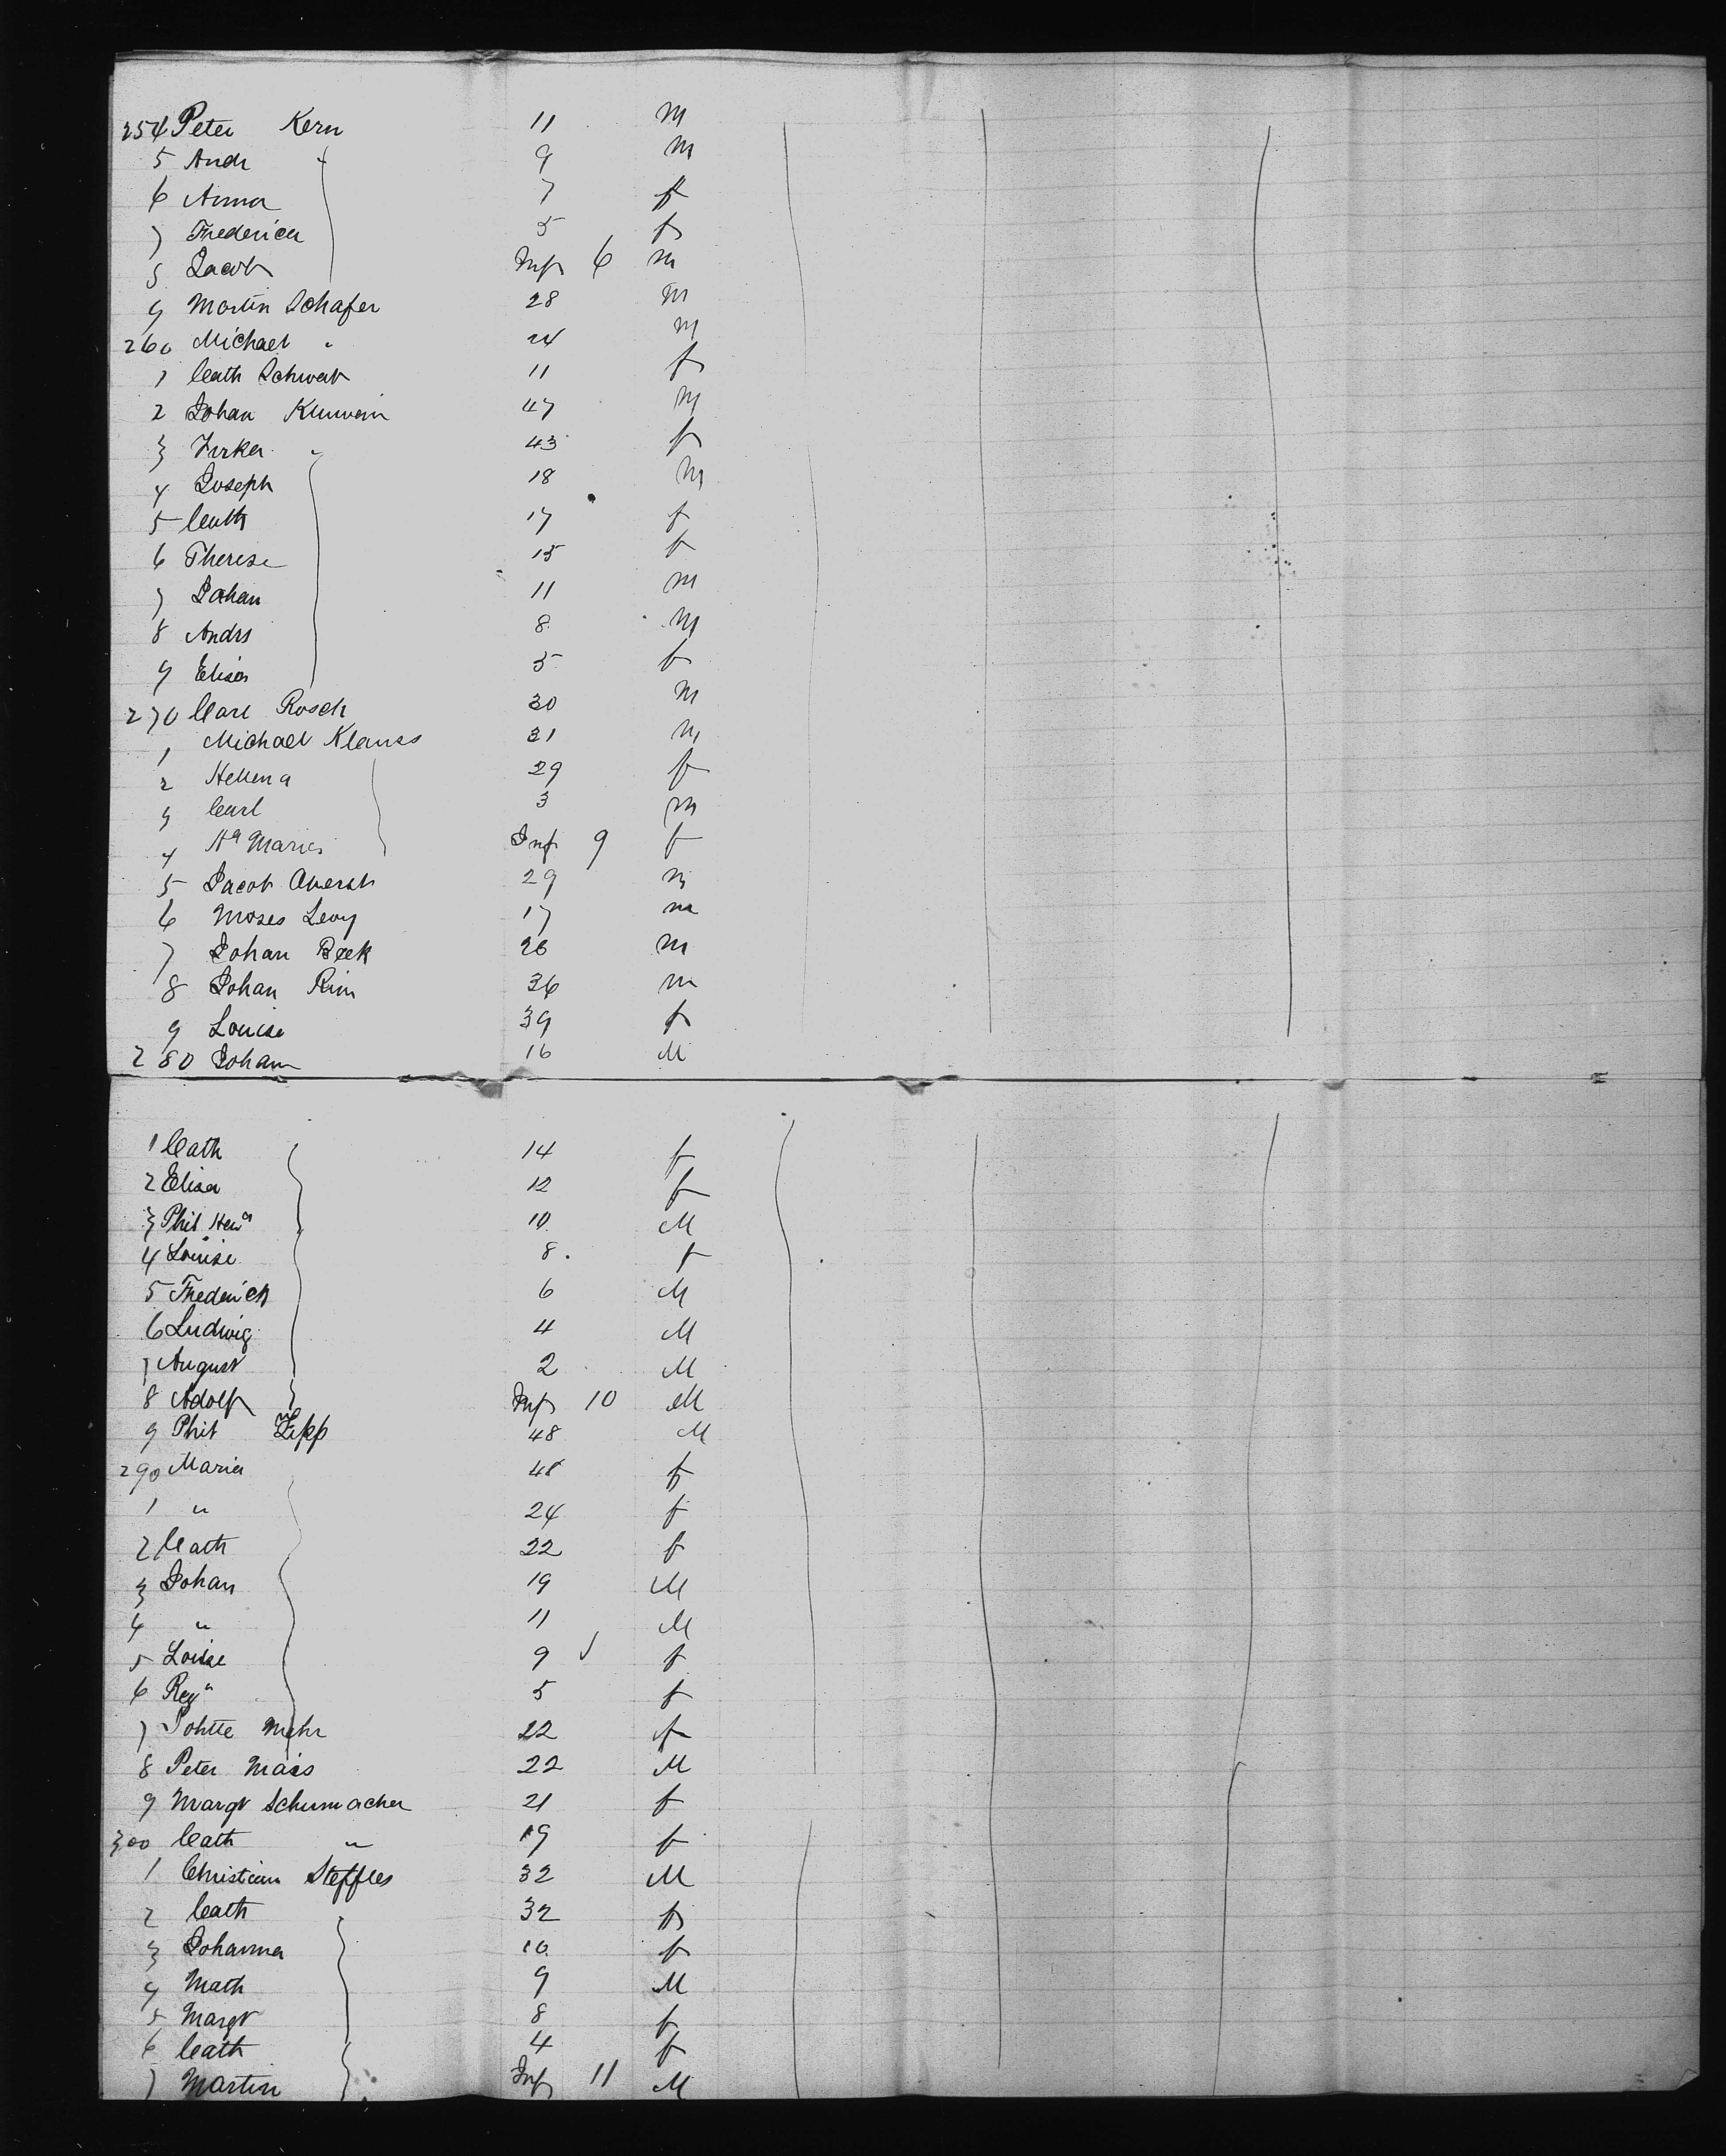 254 Peter Kern 11 M
5 Andr " 9 M
6 Anna 7 f
7 Frederica 5 f
8 Jacob Inf 6 M
9 Martin Schafer 28 M
260 Michael " 24 M
1 Cath Schwab 11 f
2 Johan 47 M
3 43 f
4 Joseph 18 M
5 Cath 17 f
6 Therese 15 f
7 Johan 11 M
8 Andrs 8 M
9 Elisa 5 f
270 Carl Rosch 30 M
1 Michael Klauss 31 M
2 Hellena 29 f
3 Carl 3 M
4 Maria Inf 9 f
5 Jacob 29 M
6 Moses Levy 17 M
7 Johan Beek 26 M
8 Johan Rim 36 M
9 Louise 39 f
280 Johan 16 M
1 Cath 14 f
2 Elisa 12 f
3 Phil 10 M
4 Louise 8 f
5 Frederich 6 M
6 Ludwig 4 M
7 August 2 M
8 Adolf Inf 10 M
9 Phil Zepp 48 M
290 Maria 48 f
1 " 24 f
2 Cath 22 f
3 Johan 19 M
4 " 11 M
5 Louise 9 f
6 Reg" 5 f
7 Mehr 22 f
8 Peter Maas 22 M
9 Margt Schumacher 21 f
300 Cath " 19 f
1 Christian Steffles 32 M
2 Cath " 32 f
3 Johanna 10 f
4 Math 9 M
5 Margt 8 f
6 Cath 4 f
7 Martin Inf 11 M